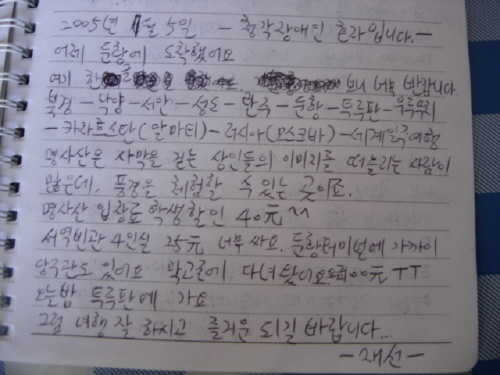 2005년 1월 5일 - 청각장애인 혼자입니다.-
어제 둔황에 도착했어요
여기 한글 보니 너무 반갑니다.
북경-낙양-서안-성도-란주-둔황-투루판-우루무치
-카라흐스탄(알마티)-러시아(모스크바)-세계일주여행
명사산은 사막을 걷는 상인들의 이미지를 떠올리는 사람이
많은데, 풍경을 체험할 수 있는 곳이죠.
명사산 입장료 학생할인 40元^^
서역비관 4인실 25元 너무 싸요. 둔황터미널에 가까이
양국관도 있어요 막고굴에 다녀왔어요 100元 ㅜㅜ
오늘밤 투루판에 가요
그럼 여행 잘 하시고 즐거운 되길 바랍니다..
-재선-